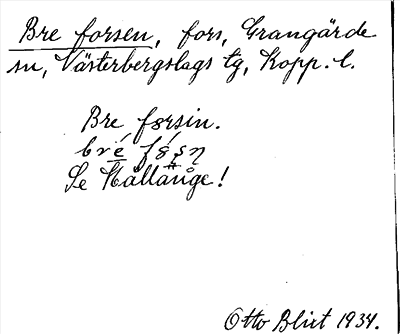 Bre forsen, fors, Grangärde
sn, Västerbergslags tg, Kopp. l.
Bre førsin.
Se Hållänge!
Otto Blixt 1934.